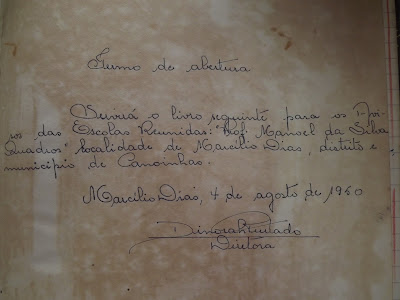 Termo de abertura
Servirá o livro seguinte para os
das Escolas Reunidas: "Prof. Manoel da Silva
Quadros" localidade de Marcílio Dias, distrito e
município de Canoinhas.
Marcílio Dias, 4 de agosto de 1960
Diretora